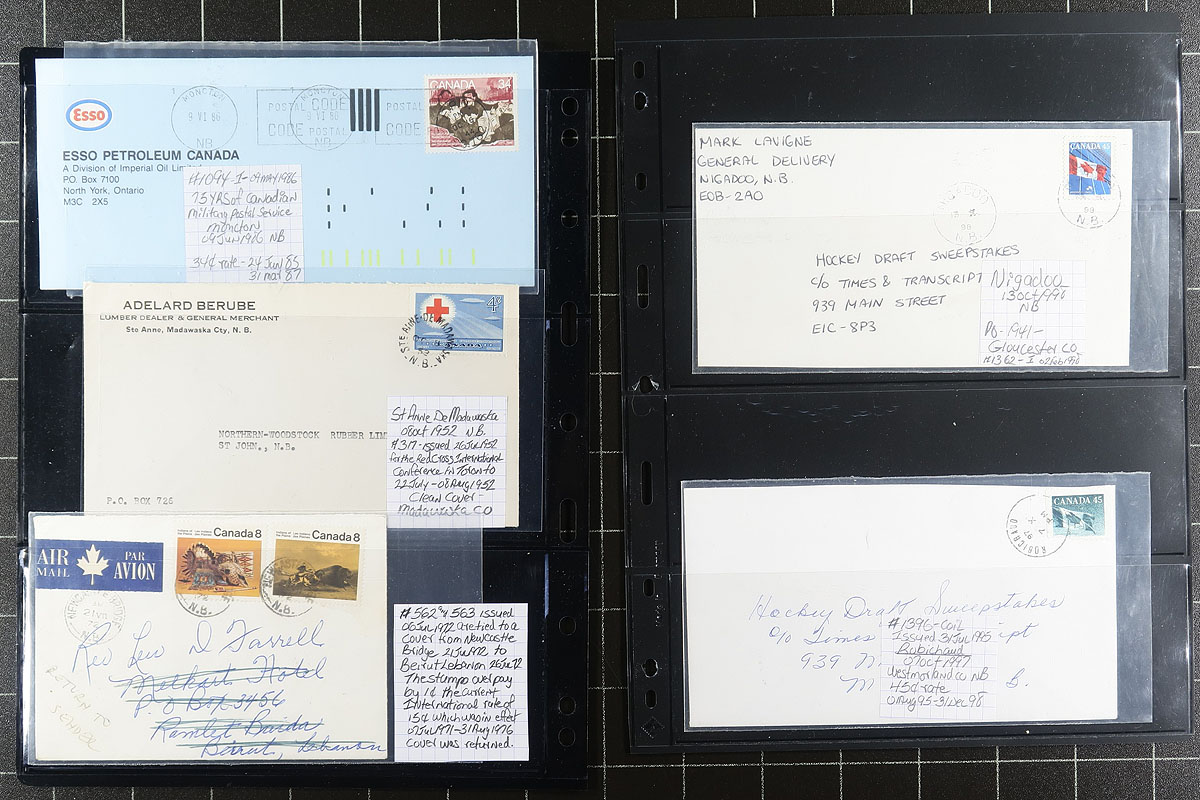 Esso
ESSO PETROLEUM CANADA
A Division of Imperial Oil Limi
P.O. Box 7100
North York, Ontario
M3C 2X5
MONCTON
9 VI 86
NB
POSTAL CODE
CODE POSTAL
MONCTON
9 VI 86
NB
POSTAL
CODE
CANADA 34
#1094-I-09MAY1986
75YRS of Canadian
Military Postal Service
Moncton
09JUN1986 NB
34¢ rate - 24Jun85
31mar87
ADELARD BERUBE
LUMBER DEALER & GENERAL MERCHANT
Ste Anne, Madawaska Cty, N. B.
4¢
CANADA
STE-ANNE-DE-MADAWASKA
N.B.
NORTHERN-WOODSTOCK RUBBER LIM
ST JOHN., N.B.
P.O. BOX 726
St Anne De Madawaska
08oct1952 N.B.
#317-issued 26Jul1952
for the Red Cross International
Conference in Toronto
22July-08Aug1952
Clean Cover-
Madawaska CO
AIR MAIL
PAR AVION
Canada 8
Canada 8
N.B.
N.B.
Rev Leo D Farrell
Melkart Hotel
P.O Box 3456
Ramlet Baida
Beirut, Lebanon
RETURN TO
SENDER
#562 & 563 issued
06Jul1972 are tied to a
cover from Newcastle
Bridge 21Jul1972 to
Beirut Lebanon 26Jul72
The stamps overpay
by 1¢ the current
International rate of
15¢ which was in effect
01Jul1971-31Aug1976
cover was returned.
MARK LAVIGNE
GENERAL DELIVERY
NIGADOO, N.B.
E0B-2A0
CANADA 45
NIGADOO
N.B.
N.B.
HOCKEY DRAFT SWEEPSTAKES
C/O TIMES & TRANSCRIPT
939 MAIN STREET
E1C-8P3
Nigadoo
13oct1996
NB
PO-1941-
Gloucester CO
#1362-I 02Feb1996
CANADA 45
ROBICHAUD
Hockey Draft Sweepstakes
c/o Times ipt
939 M
M B.
#1396-Coil
Issued 31Jul1995
Rubichaud
07oct1997
Westmorland co NB
45¢ rate
01Aug95-31Dec98